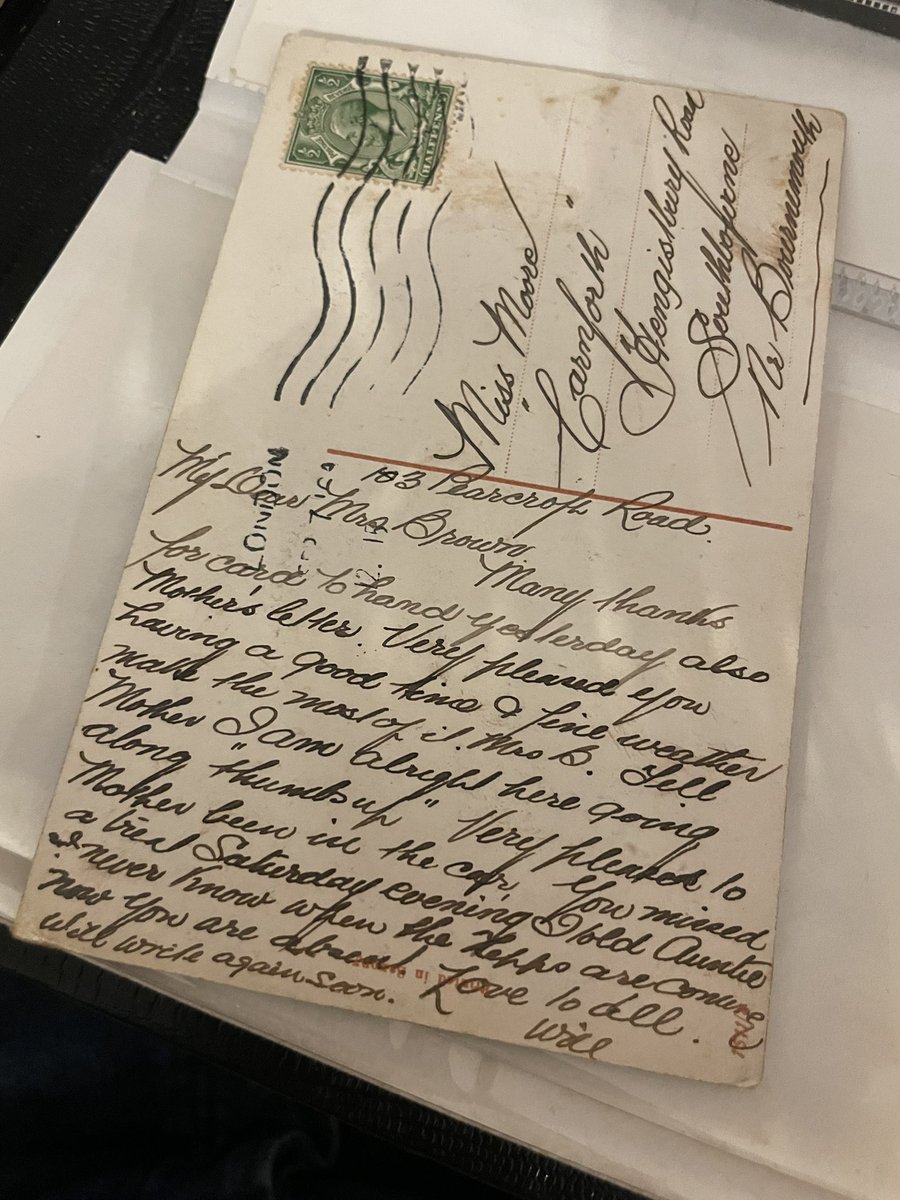 ½ ½
HALFPENNY
Miss Moore
"Carnforth"
Hengistbury Road
Southbourne
Nr Bournemouth
103 Pearcroft Road.
My Dear Mrs Brown
Many thanks
for card to hand yesterday also
Mother's letter. Very pleased you
having a good time & fine weather
make the most of it. Mrs B. Tell
Mother I am alright here going
along "thumbs up" Very pleased to
Mother been in the car, You missed
a treat Saturday evening I told Auntie
I never know when the are coming
now you are absent Love to all.
Will write again soon.
Will
LONDON